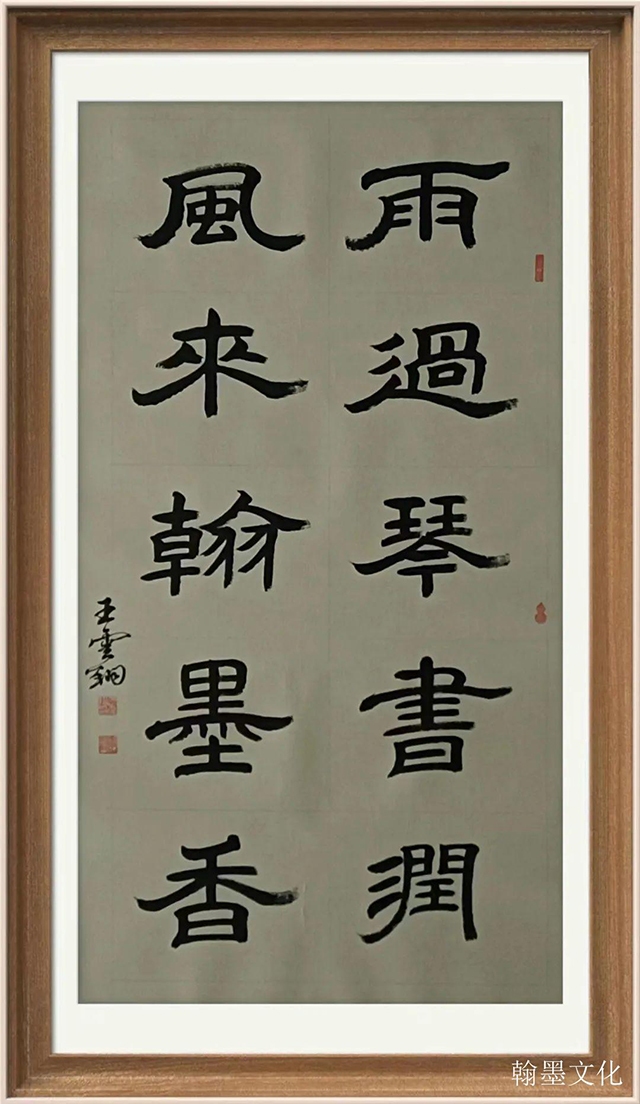 雨過琴書潤
風來翰墨香
王雲翔
翰墨文化